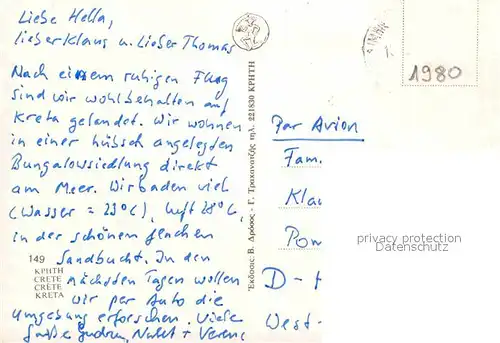 Liebe Hella,
lieber Klaus u. lieber Thomas
Nach einem ruhigen Flug
sind wir wohlbehalten auf
Kreta gelandet. Wir wohnen
in einer hübsch angelegten
Bungalowsiedlung direkt
am Meer. Wir baden viel
(Wasser = 23°C), Luft 28°C,
in der schönen flachen
Sandbucht. In den
nächsten Tagen wollen
wir per Auto die
Umgebung erforschen. Viele
Grüße Gudrun,
149
ΚΡΗΤΗ
CRETE
CRÈTE
KRETA
Ἔκδοσις: Β. Δρόσος - Γ. τηλ. 221830 ΚΡΗΤΗ
1980
Par Avion
Fam.
Klau
Pom
D - H
West-
privacy protection
Datenschutz